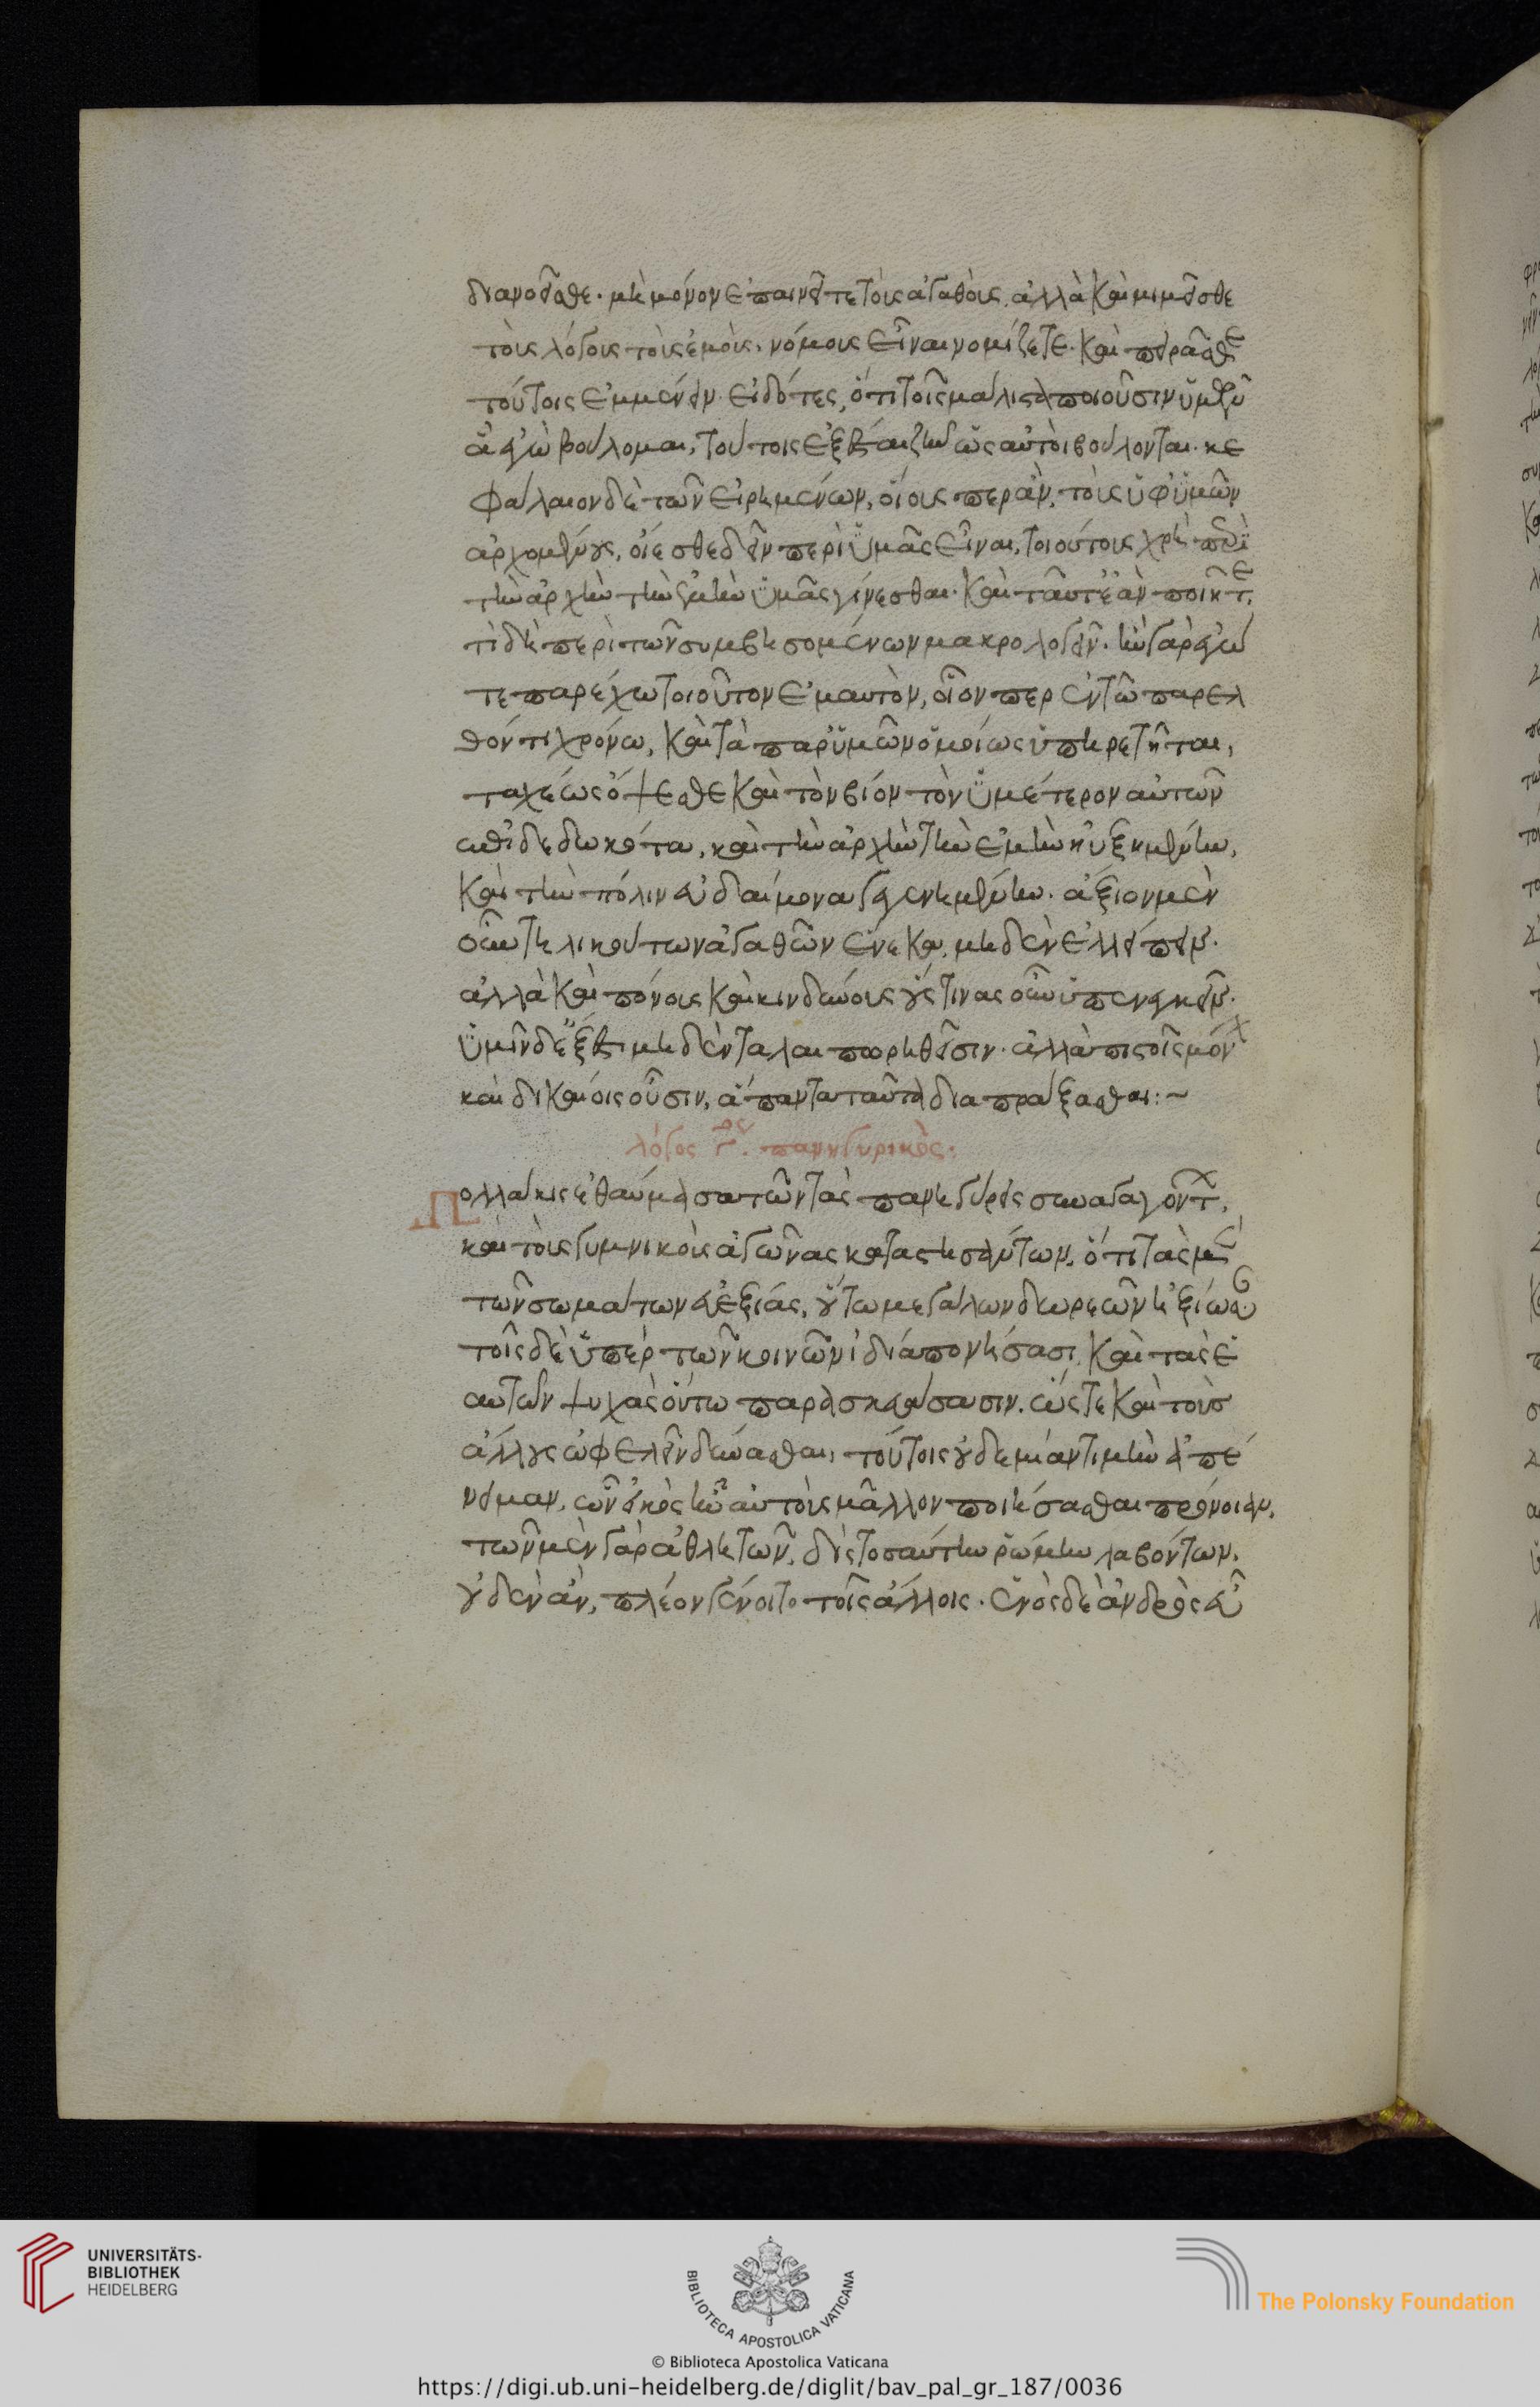 διανοεῖσθε. μὴ μόνον ἐπαινεῖτε τοὺς ἀγαθοὺς, ἀλλὰ καὶ μιμεῖσθε
τοὺς λόγους τοὺς ἐμοὺς, νόμους εἶναι νομίζετε. καὶ πειρᾶσθε
τούτοις ἐμμένειν. εἰδότες, ὅτι τοῖς μάλιστα ποιοῦσιν ὑμῶν
ἃ ἐγὼ βούλομαι, τούτοις ἐξέσται ζῆν ὡς αὐτοὶ βούλονται. κε
φάλαιον δὲ τῶν εἰρημένων, οἵους περ ἂν, τοὺς ὑφ' ὑμῶν
ἀρχομένους, οἴεσθε δεῖν περὶ ὑμᾶς εἶναι, τοιούτους χρὴ περὶ
τὴν ἀρχὴν τὴν ἐμὴν ὑμᾶς γίνεσθαι. καὶ ταῦτ' ἐὰν ποιῆτε,
τί δὴ περὶ τῶν συμβησομένων μακρολογεῖν. ἢν γὰρ ἐγώ
τε παρέχω τοιοῦτον ἐμαυτὸν, οἷον περ ἐν τῶ παρελ
θόντι χρόνω, καὶ τὰ παρ' ὑμῶν ὁμοίως ὑπηρετῆται,
ταχέως ὄψεσθε καὶ τὸν βίον τὸν ὑμέτερον αὐτῶν
ἐπιδεδωκότα, καὶ τὴν ἀρχὴν τὴν ἐμὴν ηὐξημένην,
καὶ τὴν πόλιν εὐδαίμονα γεγενημένην. ἄξιον μὲν
οὖν τηλικούτων ἀγαθῶν ἕνεκα, μηδὲν ἐλλείπειν.
ἀλλὰ καὶ πόνους καὶ κινδύνους οὕς τινας οὖν ὑπενεγκεῖν.
ὑμῖν δὲ ἔξεστι μηδὲν ταλαιπωρηθεῖσιν. ἀλλὰ πιστοῖς μόνον
καὶ δικαίοις οὖσιν, ἅπαντα ταῦτα διαπράξασθαι:~
λόγος γος. πανηγυρικὸς.
Πολλάκις ἐθαύμασα τῶν τὰς πανηγύρεις συναγαγόντων,
καὶ τοὺς γυμνικοὺς ἀγῶνας καταστησάντων, ὅτι τὰς μὲν
τῶν σωμάτων εὐεξίας, οὕτω μεγάλων δωρεῶν ἠξίωσαν
τοῖς δὲ ὑπὲρ τῶν κοινῶν ἰδία πονήσασι, καὶ τὰς ἑ
αυτῶν ψυχὰς οὕτω παρασκευάσασιν. ὥστε καὶ τοὺς
ἄλλους ὠφελεῖν δύνασθαι, τούτοις οὐδεμίαν τιμὴν ἀπέ
νειμαν, ὧν εἰκὸς ἦν αὐτοὺς μᾶλλον ποιήσασθαι πρόνοιαν,
τῶν μὲν γὰρ ἀθλητῶν, δὶς τοσαύτην ῥώμην λαβόντων,
οὐδὲν ἂν, πλέον γένοιτο τοῖς ἄλλοις. ἑνὸς δὲ ἀνδρὸς εὖ
UNIVERSITÄTS-
BIBLIOTHEK
HEIDELBERG
BIBLIOTECA APOSTOLICA VATICANA
The Polonsky Foundation
© Biblioteca Apostolica Vaticana
https://digi.ub.uni-heidelberg.de/diglit/bav_pal_gr_187/0036